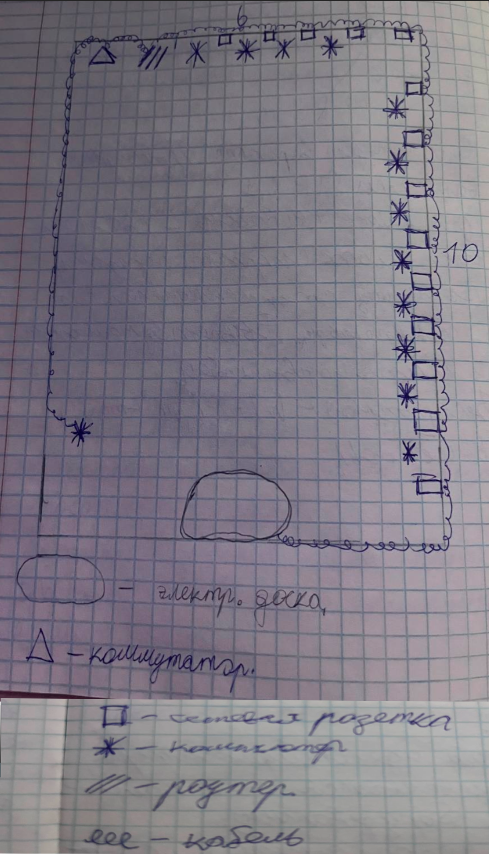 6
10
- электр. доска,
- коммутатор.
- сетевая розетка
- компьютер
- роутер.
- кабель